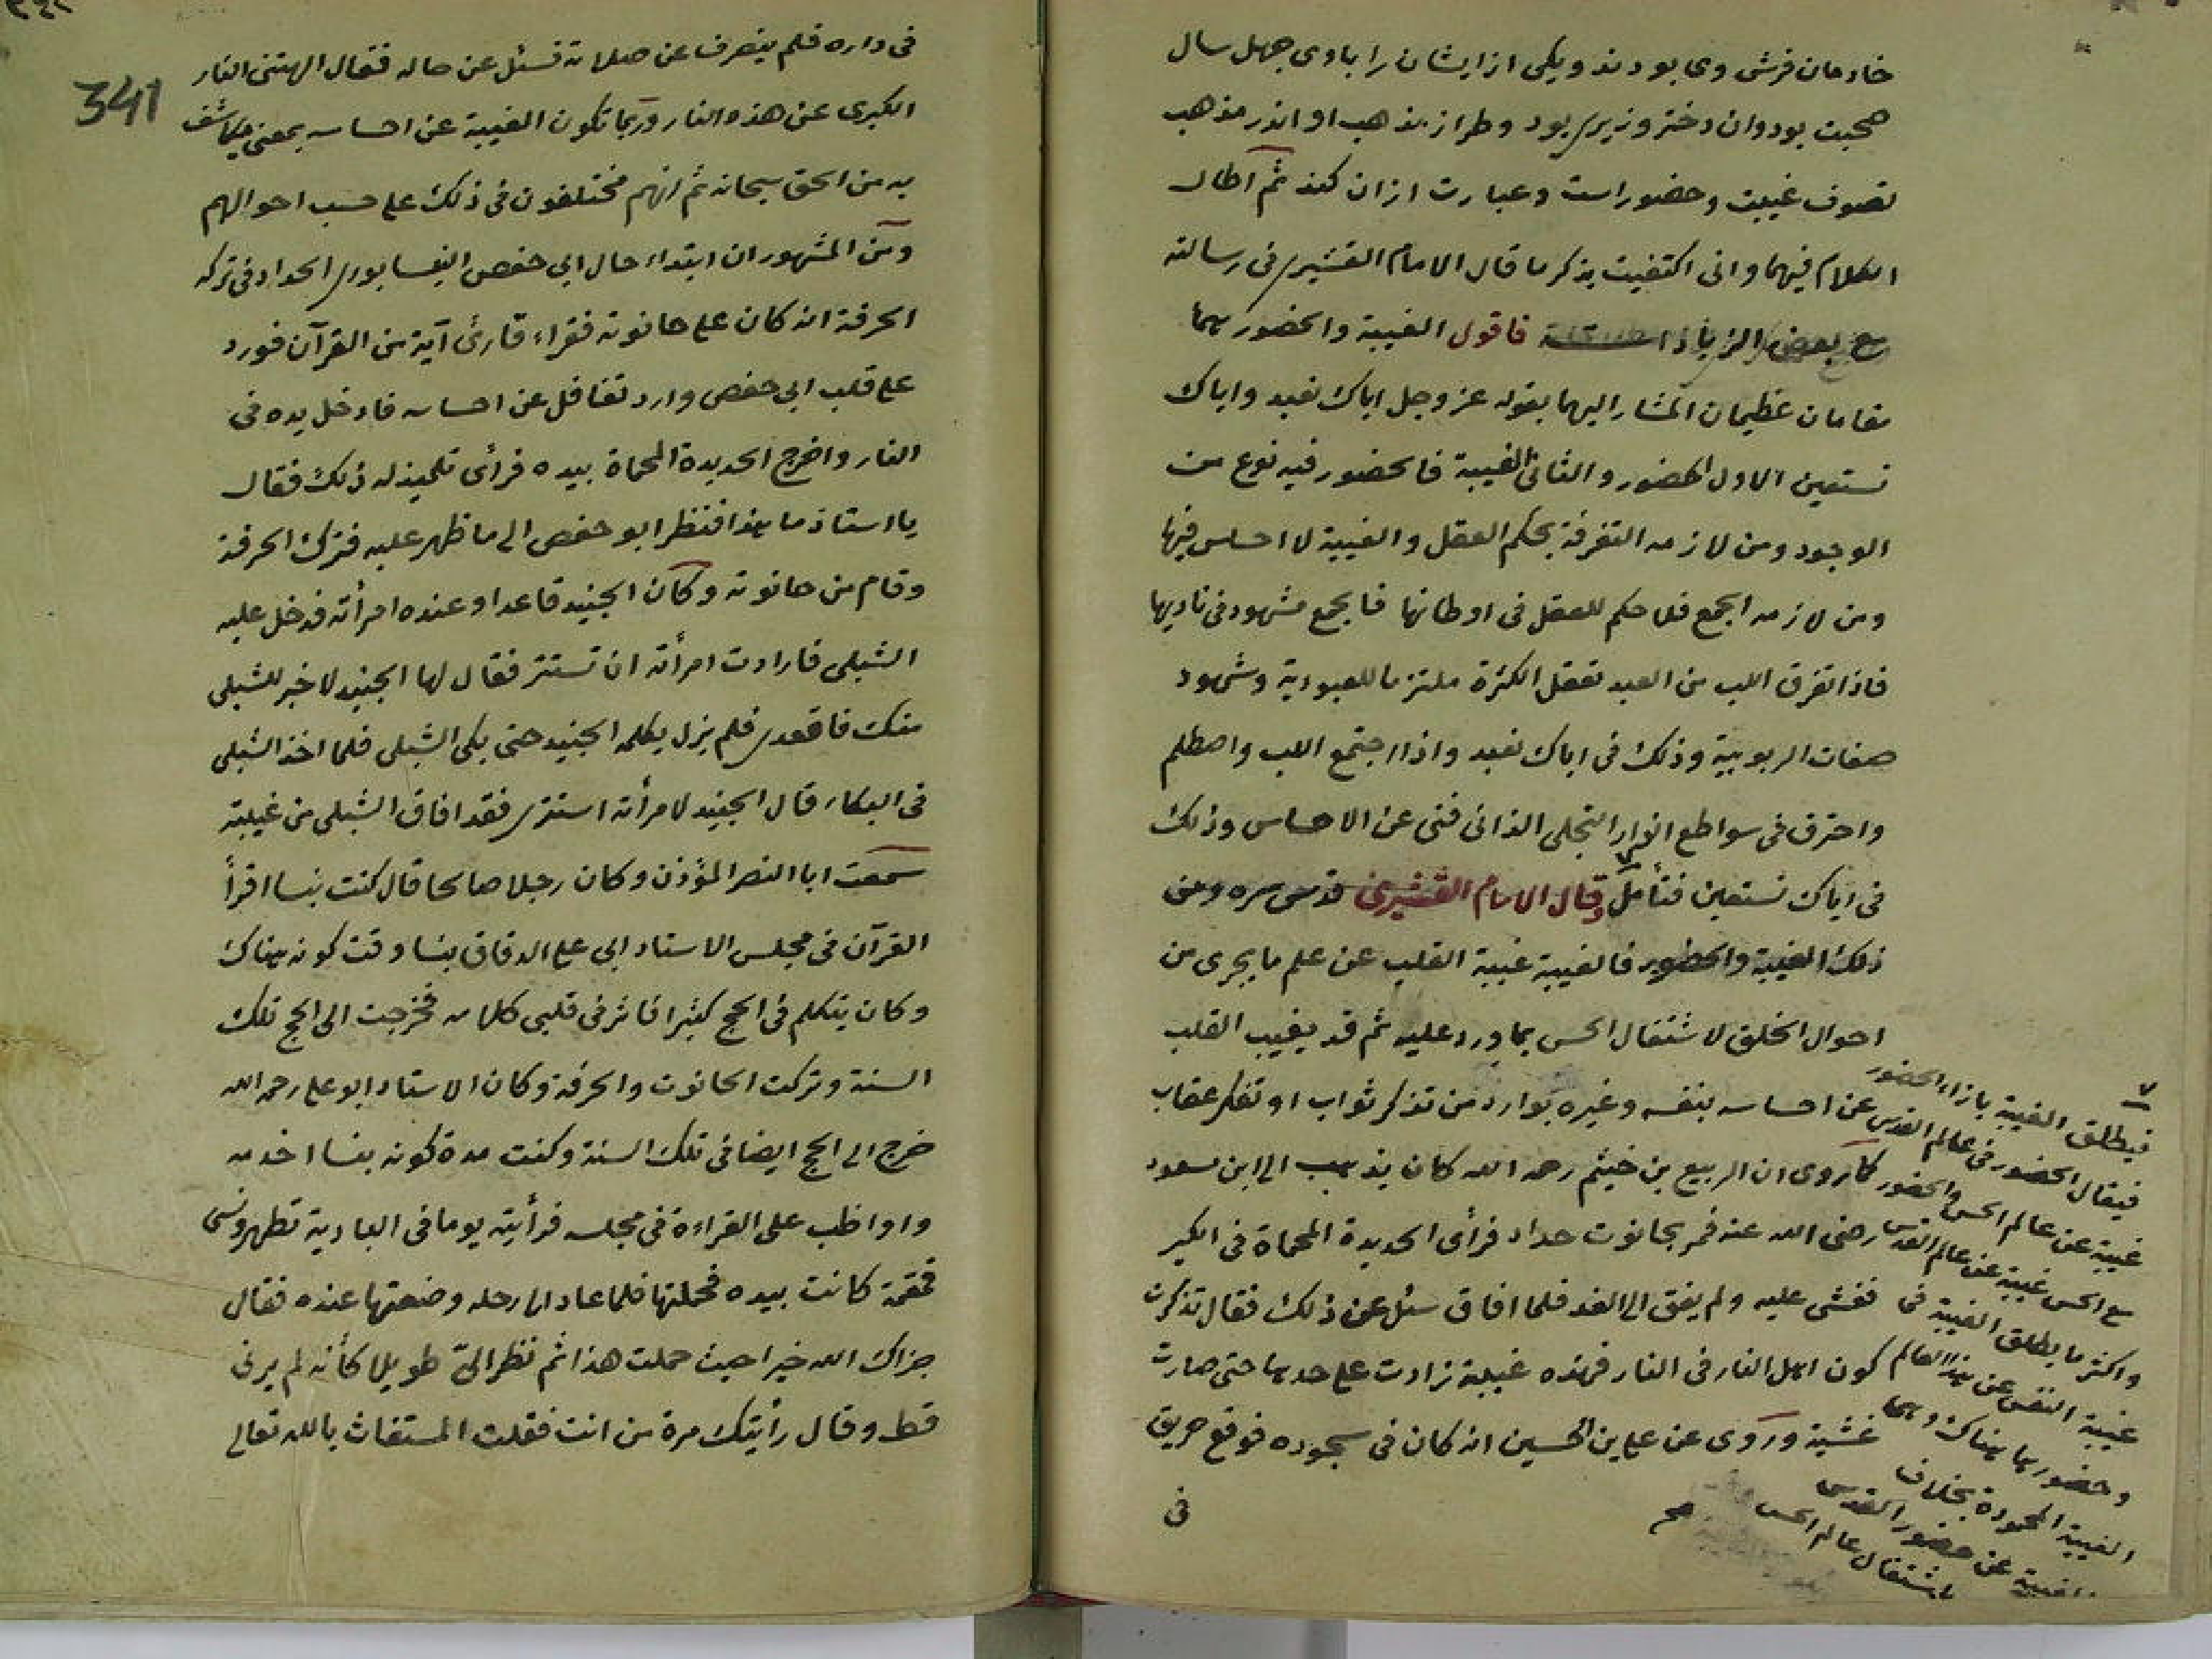 خادمان فرش وی بودند و یکی از ایشان را با وی چهل سال
صحبت بود وان دختر وزیری بود و طراز مذهب او اندر مذهب
تصوف غیبت و حضور است و عبارت ازان کند ثم اطال
الكلام فيهما وانى اكتفيت بذكر ما قال الامام القشيرى فى رسالته
مع بعض الزيادات فاقول الغيبة والحضور هما
مقامان عظيمان المشار اليهما بقوله عز وجل اياك نعبد واياك
نستعين الاول الحضور والثانى الغيبة فالحضور فيه نوع من
الوجود ومن لازمه التفرقة بحكم العقل والغيبة لا احساس فيها
ومن لازمه الجمع فلا حكم للعقل فى اوطانها فالجمع مشهود فى ناديها
فاذا تفرق اللب من العبد تعقل الكثرة ملتزما للعبودية وشهود
صفات الربوبية وذلك فى اياك نعبد واذا اجتمع اللب واصطلم
واحترق فى سواطع انوار التجلى الذاتى فنى عن الاحساس وذلك
فى اياك نستعين فتأمل وقال الامام القشيرى قدس سره ومن
ذلك الغيبة والحضور فالغيبة غيبة القلب عن علم ما يجرى من
احوال الخلق لاشتغال الحس بما ورد عليه ثم قد يغيب القلب
عن احساسه بنفسه وغيره بوارد من تذكر ثواب او تفكر عقاب
كما روى ان الربيع بن خيثم رحمه الله كان يذهب الى ابن مسعود
رضى الله عنه فمر بحانوت حداد فرأى الحديدة المحماة فى الكير
فغشى عليه ولم يفق الى الغد فلما افاق سئل عن ذلك فقال تذكرت
كون اهل النار فى النار فهذه غيبة زادت على حدها حتى صارت
غشية وروى عن على بن الحسين انه كان فى سجوده فوقع حريق
فى
فيطلق الغيبة بازاء الحضور
فيقال الحضور فى عالم القدس
غيبة عن عالم الحس والحضور
مع الحس غيبة عن عالم القدس
واكثر ما يطلق الغيبة فى
غيبة النفس عن هذا العالم
وحضورها هناك وهما
الغيبة المحمودة بخلاف
الغيبة عن حضور القدس
باشتغال عالم الحس
صح
341
فى داره فلم ينصرف عن صلاته فسئل عن حاله فقال الهتنى النار
الكبرى عن هذه النار وربما تكون الغيبة عن احساسه بمعنى يكاشف
به من الحق سبحانه ثم انهم مختلفون فى ذلك على حسب احوالهم
ومن المشهور ان ابتداء حال ابى حفص النيسابورى الحداد فى تركه
الحرفة انه كان على حانوته فقراء قارئ آية من القرآن فورد
على قلب ابى حفص وارد تغافل عن احساسه فادخل يده فى
النار واخرج الحديدة المحماة بيده فرأى تلميذ له ذلك فقال
يا استاذ ما هذا فنظر ابو حفص الى ما ظهر عليه فترك الحرفة
وقام من حانوته وكان الجنيد قاعدا وعنده امرأته فدخل عليه
الشبلى فارادت امرأته ان تستتر فقال لها الجنيد لا خبر للشبلى
منك فاقعدى فلم يزل يكلمه الجنيد حتى بكى الشبلى فلما اخذ الشبلى
فى البكاء قال الجنيد لامرأته استترى فقد افاق الشبلى من غيبته
سمعت ابا النصر المؤذن وكان رجلا صالحا قال كنت بنسا اقرأ
القرآن فى مجلس الاستاد ابى على الدقاق بنسا وقت كونه هناك
وكان يتكلم فى الحج كثيرا فاثر فى قلبى كلامه فخرجت الى الحج تلك
السنة وتركت الحانوت والحرفة وكان الاستاد ابو على رحمه الله
خرج الى الحج ايضا فى تلك السنة وكنت مدة كونه بنسا اخدمه
واواظب على القراءة فى مجلسه فرأيته يوما فى البادية تطهر ونسى
قمقمة كانت بيده فحملتها فلما عاد الى رحله وضعتها عنده فقال
جزاك الله خيرا حيث حملت هذا ثم نظر الىّ طويلا كأنه لم يرنى
قط وقال رأيتك مرة من انت فقلت المستغاث بالله تعالى